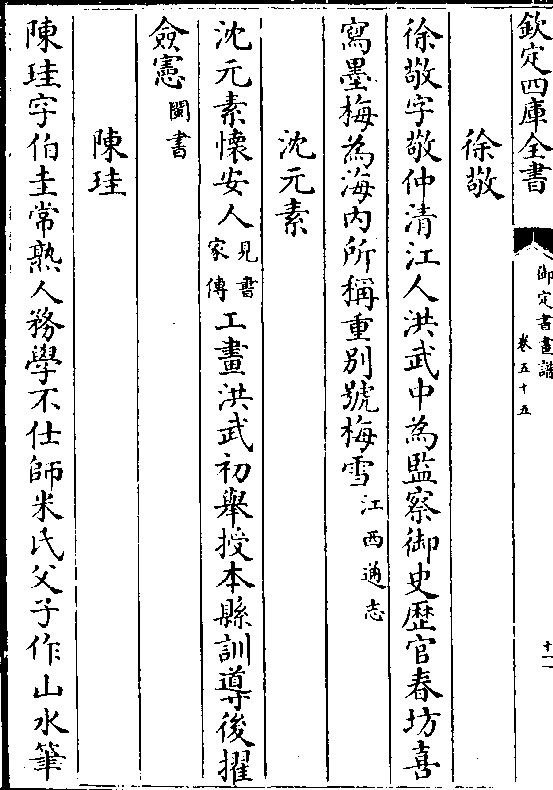 欽定四庫全書
御定書畫譜
卷五十五
十一
徐敬
徐敬字敬仲清江人洪武中為監察御史歷官春坊喜
寫墨梅為海内所稱重别號梅雪江西通志
沈元素
沈元素懷安人見書家傳工畫洪武初舉授本縣訓導後擢
僉憲閩書
陳珪
陳珪字伯圭常熟人務學不仕師米氏父子作山水筆